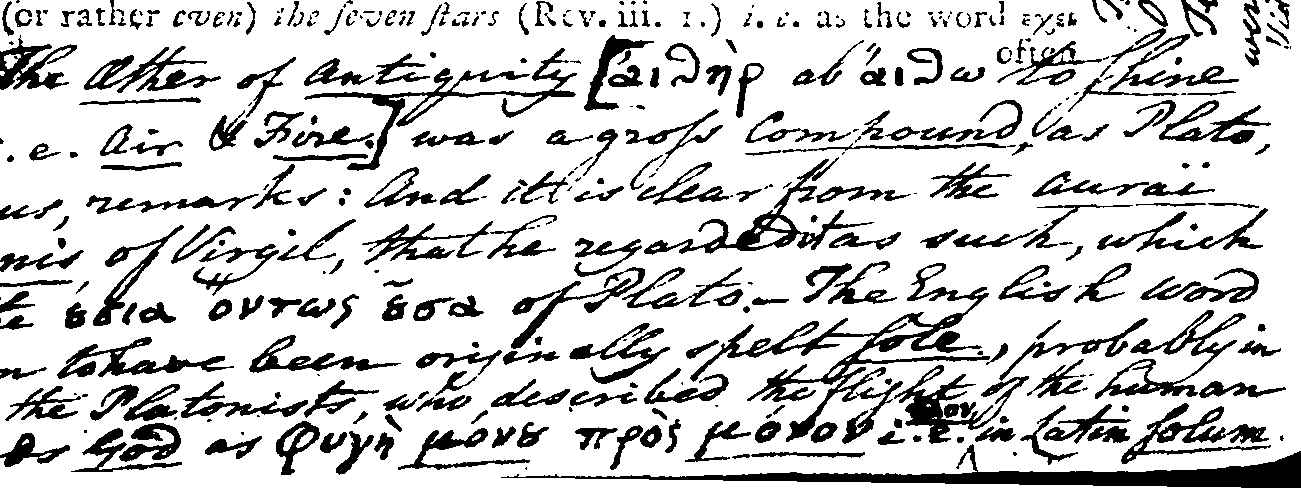 (or rather even) the ſeven ſtars (Rev. iii. 1.) i. e. as the word
often
The Æther of Antiquity [αἰθὴρ ab αἴθω to ſhine
i.e. Air & Fire.] was a groſs Compound, as Plato,
us, remarks: And it is clear from the auraï
nis of Virgil, that he regarded it as such, which
ȣσια ὄντως ȣ̃σα of Plato.— The English word
to have been originally spelt ſole, probably in
the Platonists, who described the flight of the human
as God as Φυγὴ μόνȣ πρὸς μόνον i.e. in Latin ſolum.